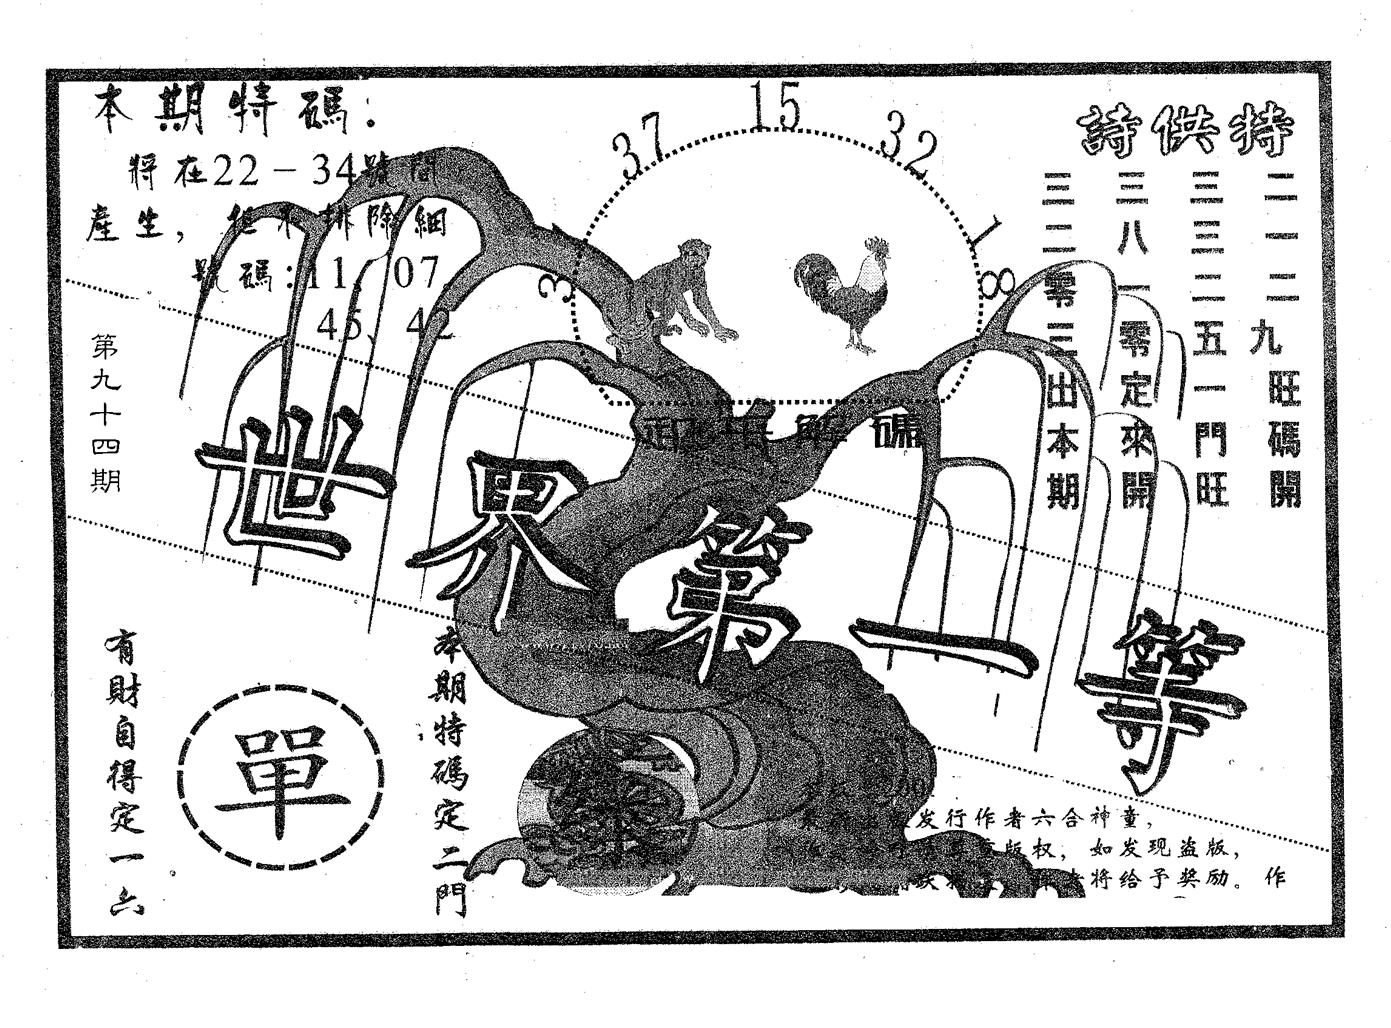 本期特碼：
將在22－34號間
產生，但不排除細
號碼：11、07、
45、42
第九十四期
37
15
32
18
特供詩
二一二九旺碼開
三三二五一門旺
三八一零定來開
三二零三出本期
解碼
世界第一等
有財自得定一六
單
本期特碼定二門
发行作者六合神童，
版权，如发现盗版，
将给予奖励。作